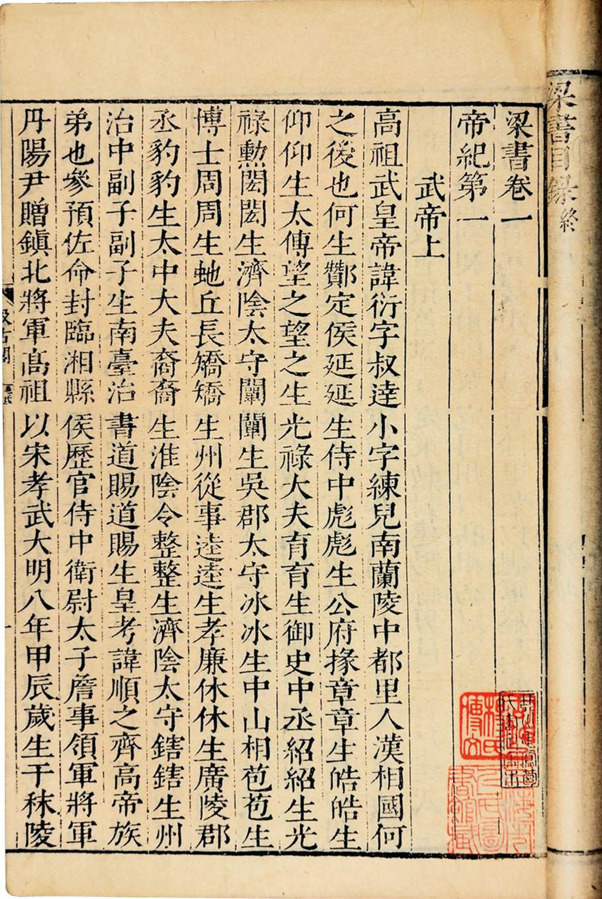 梁書目錄終
梁書卷一
帝紀第一
武帝上
高祖武皇帝諱衍字叔達小字練兒南蘭陵中都里人漢相國何
之後也何生酇定侯延延生侍中彪彪生公府掾章章生皓皓生
仰仰生太傅望之望之生光祿大夫育育生御史中丞紹紹生光
祿勲閎閎生濟陰太守闡闡生吳郡太守冰冰生中山相苞苞生
博士周周生虵丘長矯矯生州從事逵逵生孝廉休休生廣陵郡
丞豹豹生太中大夫裔裔生淮陰令整整生濟陰太守鎋鎋生州
治中副子副子生南臺治書道賜道賜生皇考諱順之齊高帝族
弟也參預佐命封臨湘縣侯歷官侍中衛尉太子詹事領軍將軍
丹陽尹贈鎮北將軍髙祖以宋孝武大明八年甲辰歲生于秣陵